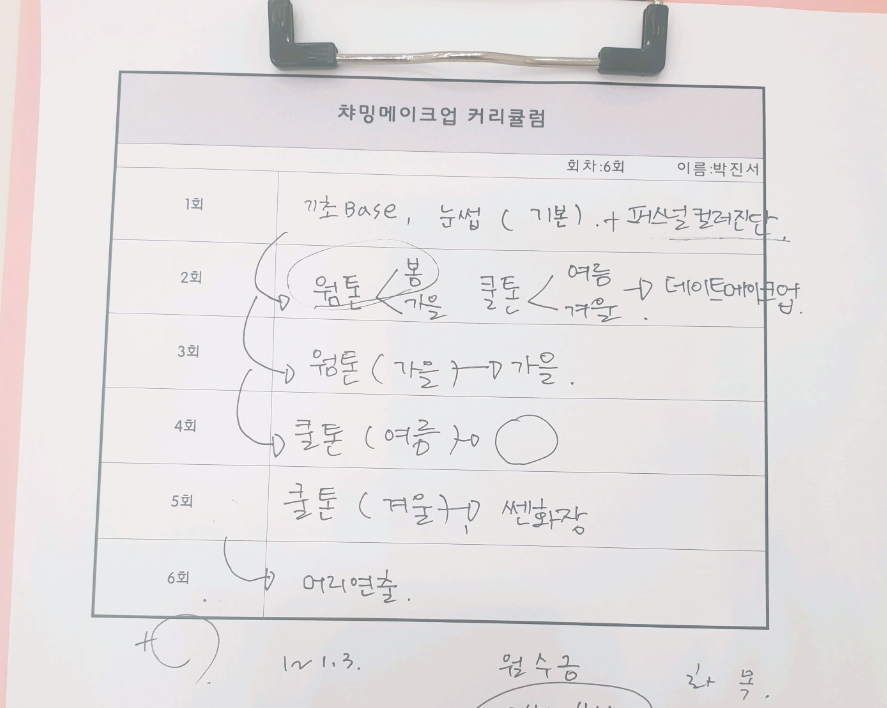 챠밍메이크업 커리큘럼
회차:6회 이름:박진서
1회 기초Base, 눈썹 (기본). + 퍼스널컬러진단.
2회 웜톤 < 봄 가을 쿨톤 < 여름 겨울 → 데이트메이크업.
3회 웜톤 (가을) → 가을.
4회 쿨톤 (여름) →
5회 쿨톤 (겨울) → 쎈화장
6회 머리연출.
+
1~1.3. 월수금 화 목.